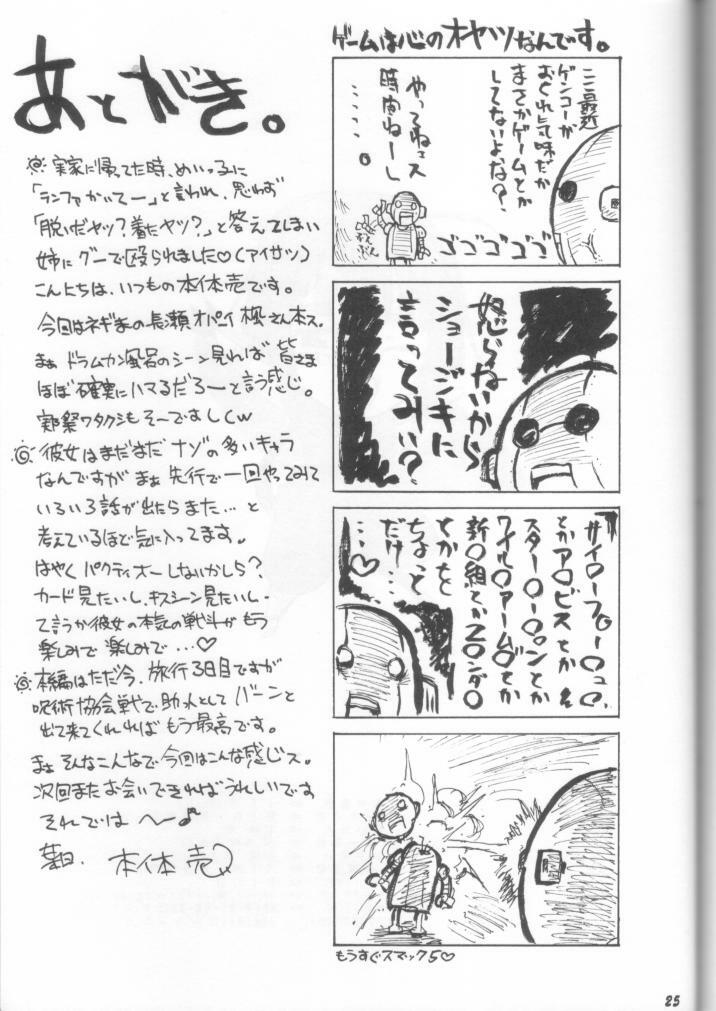 あとがき。
実家に帰ってた時、めいっ子に
「ランファかいてー」と言われ、思わず
「脱いだヤツ?着たヤツ?」と答えてしまい
姉にグーで殴られました♡(アイサツ)
こんにちは、いつもの本体売です。
今回はネギまの長瀬オパイ楓さん本ス。
まぁ ドラムカン風呂のシーン見れば 皆さま
ほぼ確実にハマるだろーと言う感じ。
実際ワタクシもそーですしくw
彼女はまだまだ ナゾの多いキャラ
なんですが まぁ 先行で一回やってみて
いろいろ話が出たらまた…と
考えているほど気に入ってます。
はやく パクティオーしないかしら?
カード見たいし、キスシーン見たいし、
て言うか彼女の本気の戦斗が もう
楽しみで楽しみで…♡
本編はただ今、旅行3日目ですが
呪術協会戦で助っ人として バーンと
出て来てくれればもう最高です。
まぁ そんなこんなで今回はこんな感じス。
次回またお会いできればうれしいです
それでは へ〜♪
本体 売
ゲームは心のオヤツなんです。
ここ最近
ゲンコーが
おくれ気味だか
まさかゲームとか
してないよな?
やってねェス
時間ねーし
……。
ゴゴゴゴゴ
怒らないから
ショージキに
言ってみい?
サイ〇ーフォ〇ーュ〇、
とかア〇ビスとか
スター〇ー〇ンとか
ワイル〇アームズとか
新〇組とかZ〇ンダ〇
とかをと
ちょっと
だけ…
…♡
もうすぐスマック5♡
25